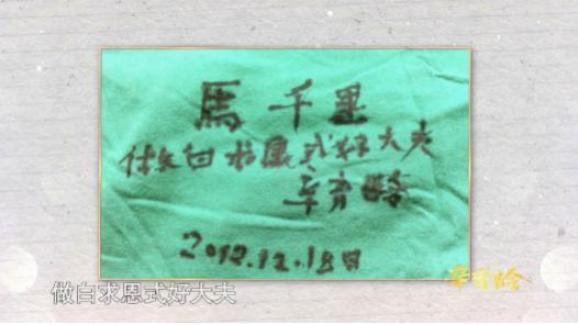 馬千里
做白求恩式好大夫
辛育龄
2012.12.18日
辛育龄
做白求恩式好大夫